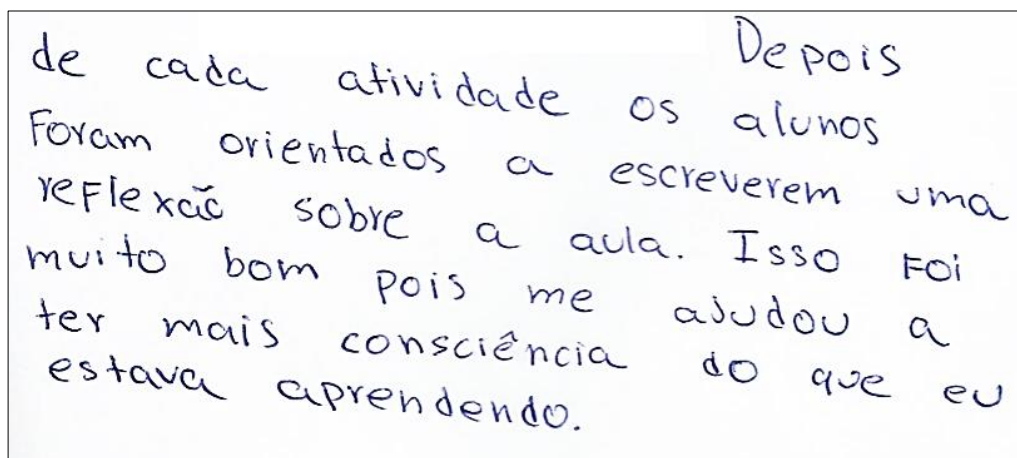 Depois
de cada atividade os alunos
Foram orientados a escreverem uma
reflexão sobre a aula. Isso foi
muito bom pois me ajudou a
ter mais consciência do que eu
estava aprendendo.